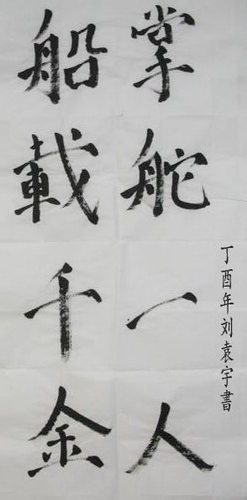 船載千金
掌舵一人
丁酉年刘袁宇書